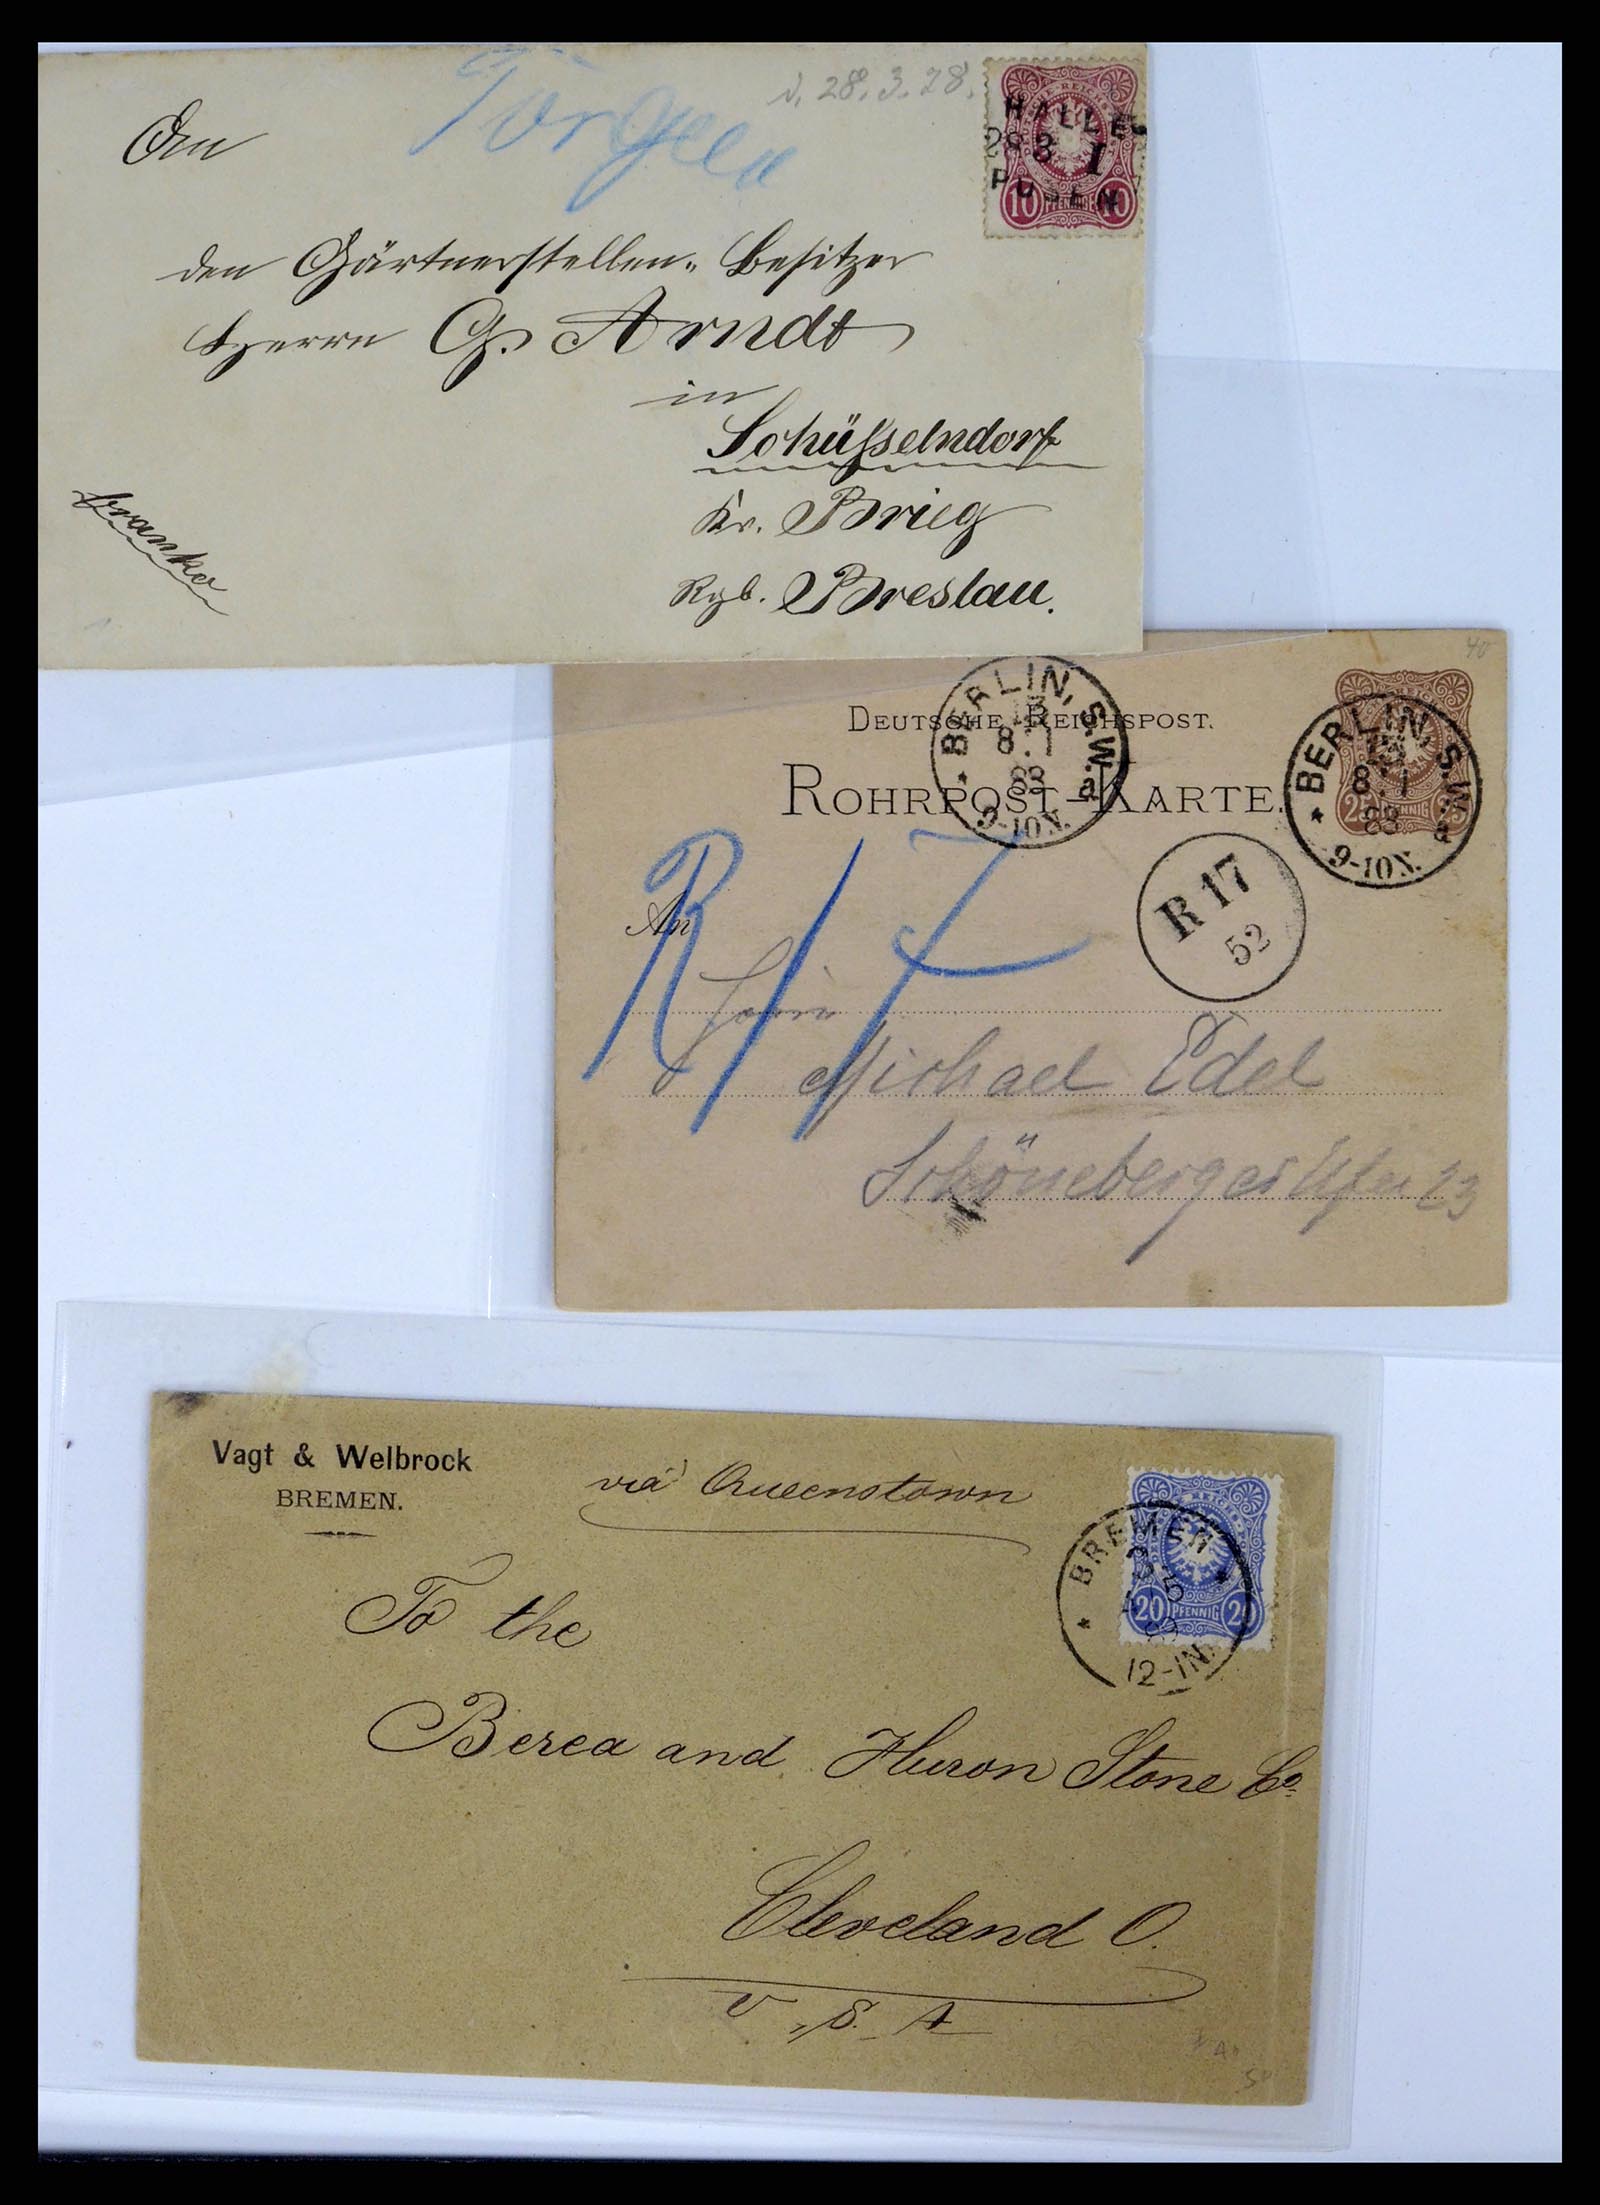 v. 28.3.78.
HALLE
28 3 I
POSEN
10 PFENNIG 10
den Gärtnerstellen-Besitzer
Herrn G. Arndt
in
Schüsselndorf
Kr. Brieg
Rgb. Breslau.
franko
40
DEUTSCHE REICHSPOST.
ROHRPOST-KARTE.
BERLIN, S.W.
8. 1
88
a
9-10N.
BERLIN, S.W.
8. 1
88
a
9-10N.
25 PFENNIG 25
R 17
52
An
Herrn
Michael Edel
Schöneberger Ufer 23
Vagt & Welbrock
BREMEN.
via Queenstown
BREMEN
12-1N.
20 PFENNIG 20
To the
Berea and Huron Stone Co.
Cleveland O.
U. S. A